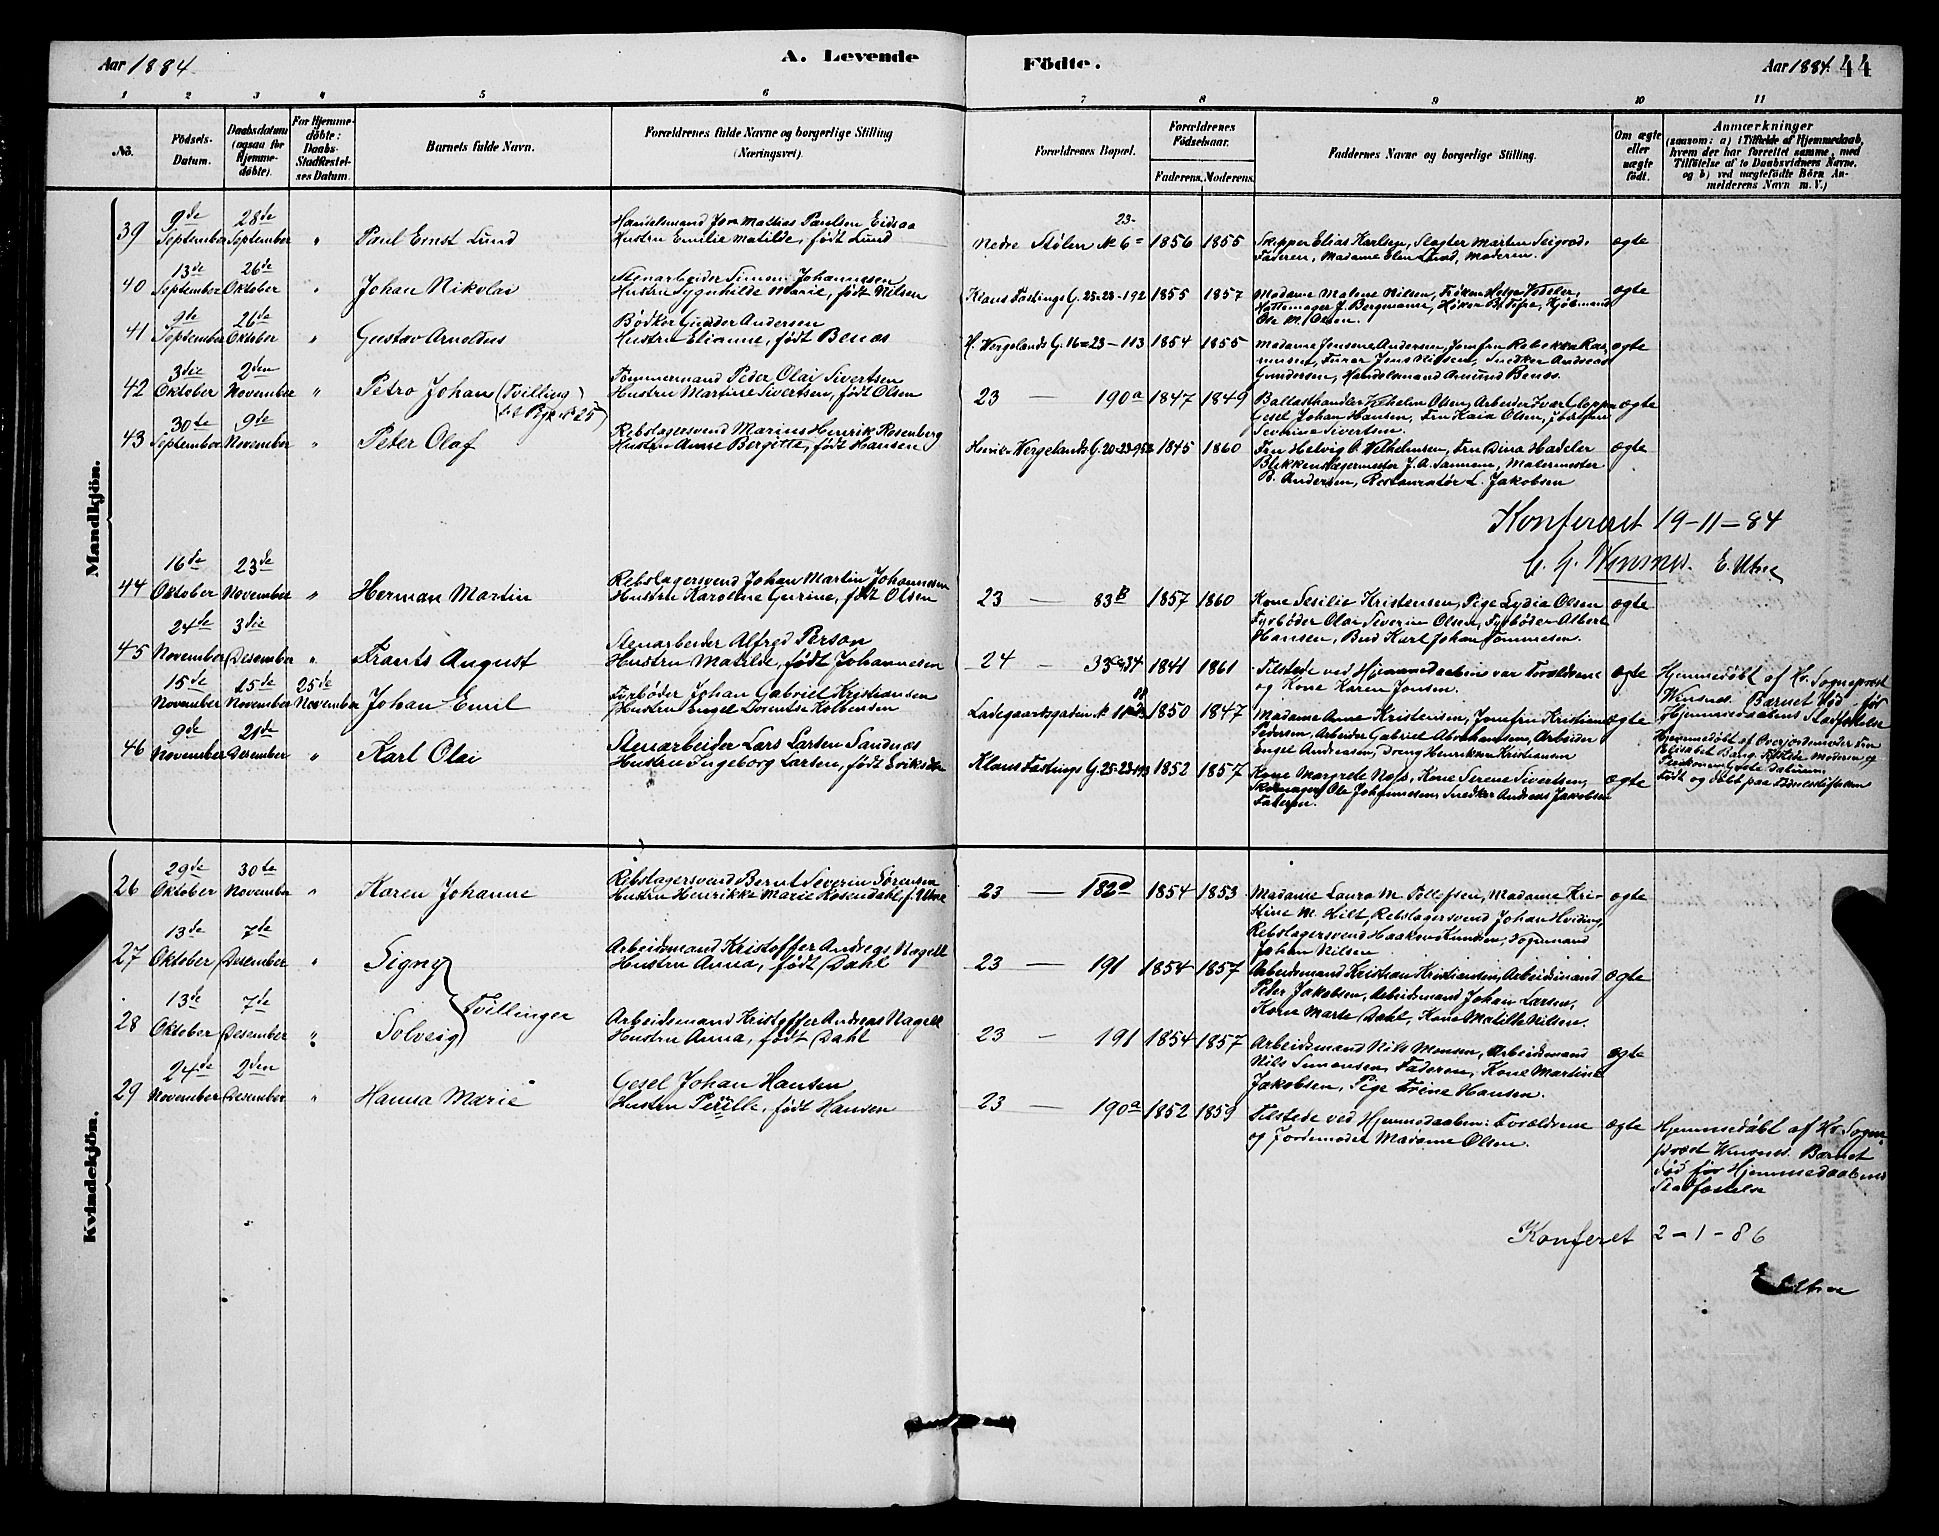 Aar 1884.
A. Levende
Födte.
Aar 1884. 44
1 2 3 4 5 6 7 8 9 10 11
No.
Födsels-Datum.
Daabsdatum (ogsaa for Hjemmedöbte).
For Hjemmedöbte: Daabs-Stadfæstelses Datum.
Barnets fulde Navn.
Forældrenes fulde Navne og borgerlige Stilling (Næringsvei).
Forældrenes Bopæl.
Forældrenes Födselsaar.
Faderens. Moderens.
Faddernes Navne og borgerlige Stilling.
Om ægte eller uægte födt.
Anmærkninger
(saasom: a) i Tilfælde af Hjemmedaab, hvem der har forrettet samme, med Tilföielse af to Daabsvidners Navne, og b) ved uægtefödte Börn Anmelderens Navn m. V.)
Mandkjön.
39 9de September 28de September " Paul Ernst Lund
Handelsmand Jon Mathias Paulsen Eidsaa
Hustru Emilie Matilde, født Lund
23-
Nedre Stølen № 6= 1856 1855
Skipper Elias Karlsen, Slagter Marten
Faderen, Madame Elen Lund, Moderen.
ægte
40 13de September 26de Oktober " Johan Nikolai
Stenarbeider Simon Johannesen
Hustru Magnhilde Marie, født Nilsen
Klaus Fastings G. 25-23-192 1855 1857
Madame Malene Nilsen, Frøken Helga
Hattemager J. Bergmann, Høker B. Kjøbmand
Ole M. Olsen.
ægte
41 9de September 26de Oktober " Gustav Arnoldus
Bødker Gunder Andersen
Hustru Elianne, født Benas
H. Vergelands G. 16=23-113 1854 1855
Madame Jensine Andersen, Jomfru Rebekka Rasmussen, Jens Nilsen, Snedker Andreas
Gundersen, Handelsmand Amund Benas.
ægte
42 3die Oktober 2den November " Petro Johan (Tvilling)
Tømmermand Peder Olai Sivertsen
Hustru Martine Sivertsen, født Olsen
23 — 190a 1847 1849
Ballasthandler Vilhelm Olsen, Arbeider Ivar Gloppen
Gesel Johan Hansen, Fru Kaia Olsen, Jomfru
Severine Sivertsen.
ægte
43 30te September 9de November " Peter Olaf
Rebslagersvend Marius Henrik Rosenberg
Hustru Anne Bergitte, født Hansen
Henrik Vergelands G. 20-23-95 1845 1860
Fru Helvig O. Vilhelmsen, Fru Dina Hadeler
Blikkenslagermester J. A. Sannem, Malermester
B. Andersen, Restauratør L. Jakobsen
ægte
Konfereret 19-11-84
E. Utne
44 16de Oktober 23de November " Herman Martin
Rebslagersvend Johan Martin Johannesen
Hustru Karoline Gurine, født Olsen
23 — 83B 1857 1860
Kone Sesilie Kristensen, Pige Lydia Olsen
Fyrbøder Olai Severin Olsen, Fyrbøder Albert
Hansen, Bud Karl Johan Tommesen.
ægte
45 24de November 3die Desember " Frants August
Stenarbeider Alfred Person
Hustru Matilde, født Johannesen
24 — 33 1841 1861
Tilstede ved Hjemmedaaben var Forældrene
og Kone Karen Jonsen.
ægte
Hjemmedøbt af Hr. Sogneprest
Barnet død før
Hjemmedaabens Stadfæstelse
15de November 15de November 25de November Johan Emil
Fyrbøder Johan Gabriel Kristiansen
Hustru Engel Dorentse Kolbensen
Ladegaardsgaden № 11 1850 1847
Madame Anne Kristensen, Jomfru Kristiane
Pedersen, Arbeider Gabriel Abrahamsen, Arbeider
Engel Andreasen, Dreng Henrik Kristiansen
ægte
Hjemmedøbt af Overjordemoder Fru
Elisabet Bang. Tilstede Moderen og
Født og døbt paa Fødselsstiftelsen
46 9de November 21de Desember " Karl Olai
Stenarbeider Lars Larsen Sandnæs
Hustru Ingeborg Larsen, født Eriksen
Klaus Fastings G. 25-23-193 1852 1857
Kone Margrete Næs, Kone Serene Sivertsen,
Skomager Ole Johannesen, Snedker Andreas Jakobsen
Faderen.
ægte
Kvindekjön.
26 29de Oktober 30te November " Karen Johanne
Rebslagersvend Bernt Severin Sørensen
Hustru Henrikke Marie Rosendahl, f. Utne
23 — 182d 1854 1853
Madame Laura M. Tollefsen, Madame Kristine M. Hilt, Rebslagersvend Johan Hviding,
Rebslagersvend Haakon Knudsen, Sømand
Johan Nilsen
ægte
27 13de Oktober 7de Desember " Signy
Arbeidsmand Kristoffer Andreas Nagell
Hustru Anna, født Dahl
23 — 191 1854 1857
Arbeidsmand Kristian Kristiansen, Arbeidsmand
Peder Jakobsen, Arbeidsmand Johan Larsen,
Kone Marte Dahl, Kone Matilde Nilsen.
ægte
Tvillinger
28 13de Oktober 7de Desember " Solveig
Arbeidsmand Kristoffer Andreas Nagell
Hustru Anna, født Dahl
23 — 191 1854 1857
Arbeidsmand Nils Monsen, Arbeidsmand
Nils Simonsen, Faderen, Kone Martine
Jakobsen, Pige Trine Hansen.
ægte
29 24de November 2den Desember " Hanna Marie
Gesel Johan Hansen
Hustru Pernille, født Hansen
23 — 190a 1852 1859
Tilstede ved Hjemmedaaben: Forældrene
og Jordemoder Madame Olsen.
ægte
Hjemmedøbt af Hr. Sogneprest Barnet
død før Hjemmedaabens
Stadfæstelse
Konferet 2-1-86
E Utne